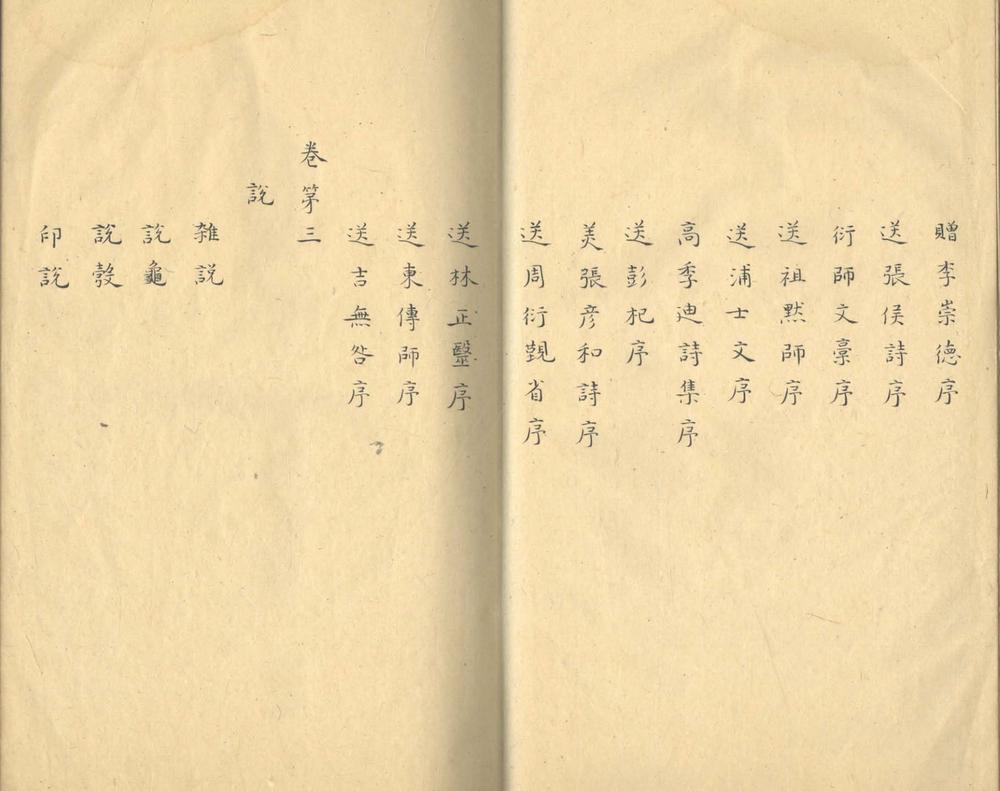 贈李崇德序
送張侯詩序
衍師文稾序
送祖黙師序
送浦士文序
高季迪詩集序
送彭𣏌序
美張彦和詩序
送周衍覲省序
送林正毉序
送東傳師序
送吉無咎序
卷苐三
說
雜說
說龜
說瞉
印說